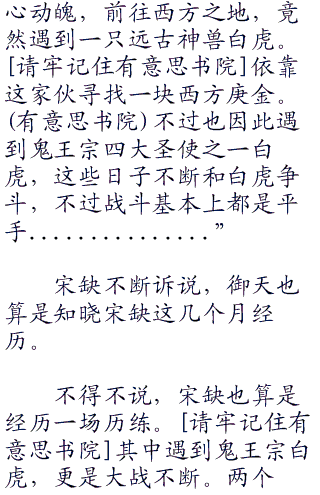 心动魄，前往西方之地，竟
然遇到一只远古神兽白虎。
[请牢记住有意思书院]依靠
这家伙寻找一块西方庚金。
(有意思书院)不过也因此遇
到鬼王宗四大圣使之一白
虎，这些日子不断和白虎争
斗，不过战斗基本上都是平
手...............”
宋缺不断诉说，御天也
算是知晓宋缺这几个月经
历。
不得不说，宋缺也算是
经历一场历练。[请牢记住有
意思书院]其中遇到鬼王宗白
虎，更是大战不断。两个